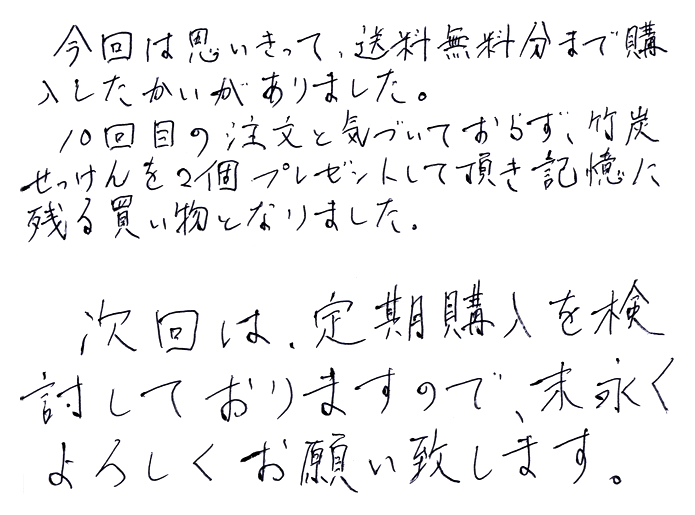 今回は思いきって、送料無料分まで購
入したかいがありました。
10回目の注文と気づいておらず、竹炭
せっけんを2個プレゼントして頂き記憶に
残る買い物となりました。
次回は、定期購入を検
討しておりますので、末永く
よろしくお願い致します。